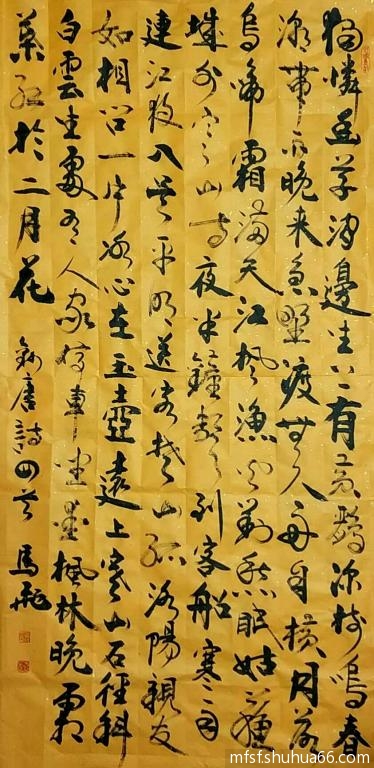 獨憐幽草澗邊生上有黃鸝深樹鳴春
潮帶雨晚來急野渡無人舟自橫月落
烏啼霜滿天江楓漁火對愁眠姑蘇
城外寒山寺夜半鐘聲到客船寒雨
連江夜入吳平明送客楚山孤洛陽親友
如相問一片冰心在玉壺遠上寒山石徑斜
白雲生處有人家停車坐愛楓林晚霜
葉紅於二月花 錄唐詩四首 馬飛
mfsfshuhua66.com